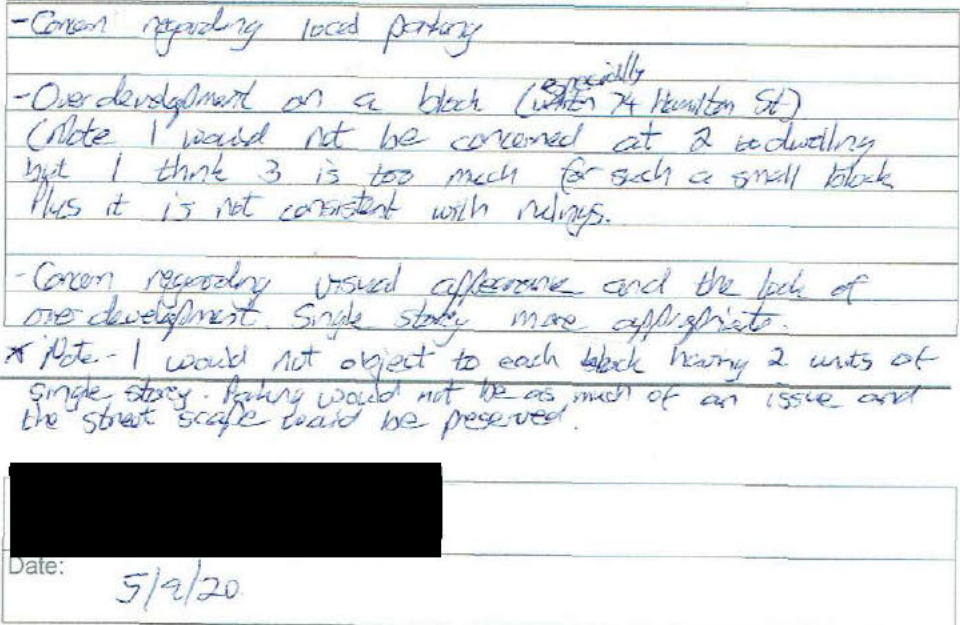 - Concern regarding local parking
- Over development on a block (especially 74 Hamilton St)
(Note I would not be concerned at 2 dwelling
but I think 3 is too much for such a small block
Plus it is not consistent with rulings.
- Concern regarding visual appearance and the look of
over development. Single storey more appropriate.
* Note - I would not object to each block having 2 units of
single storey. Parking would not be as much of an issue and
the street scape would be preserved.
Date:
5/9/20